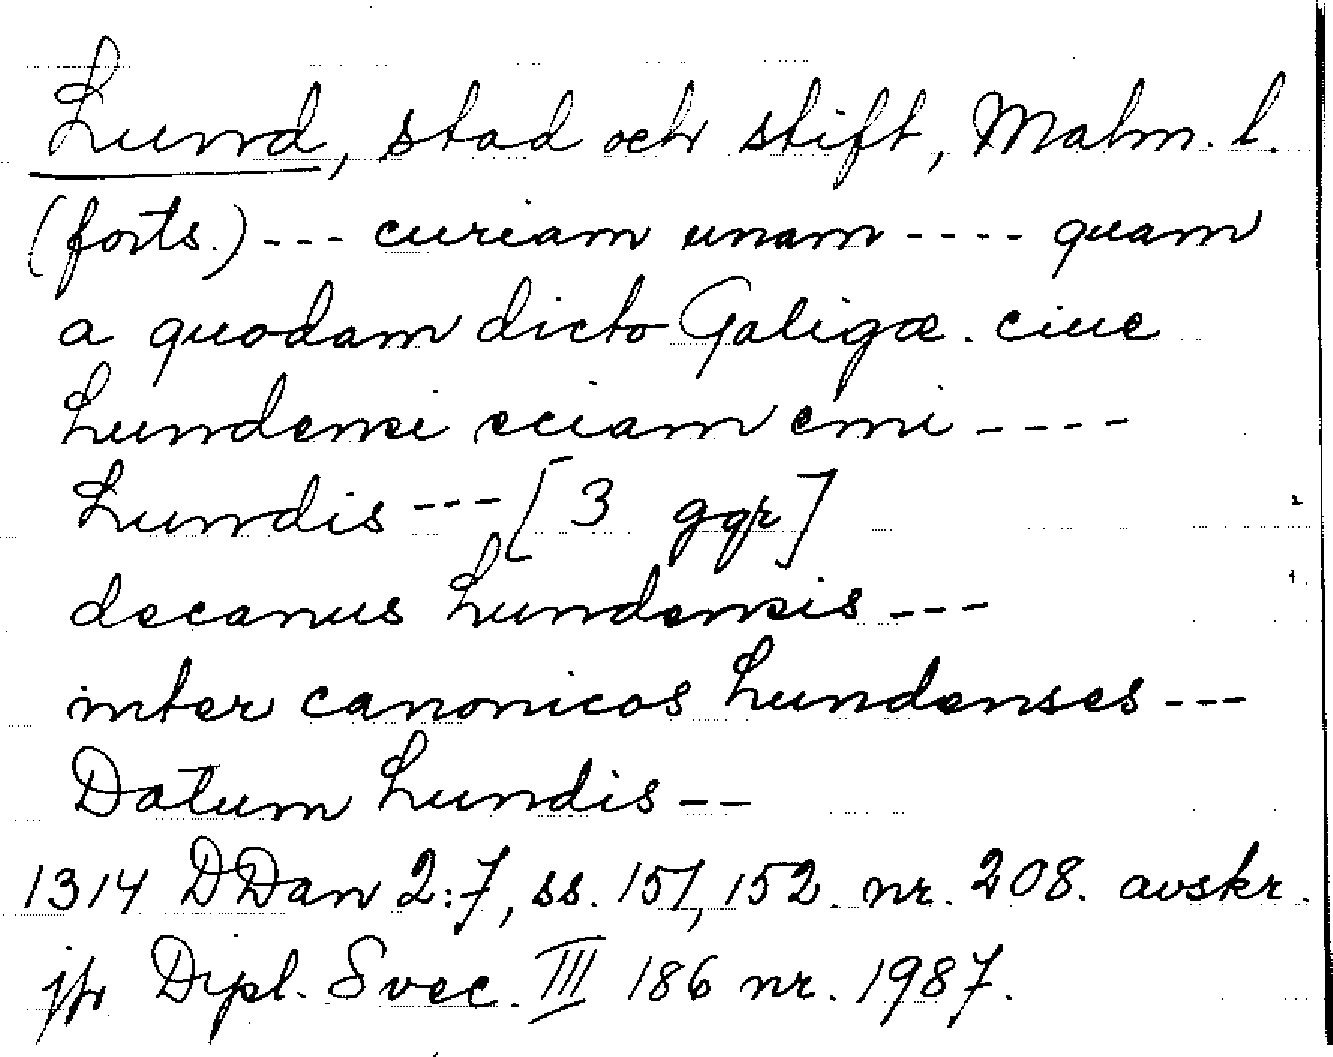 Lund, stad och stift, Malm. l.
(forts.) --- curiam unam ---- quam
a quodam dicto Galigæ. ciue
Lundensi eciam emi ----
Lundis --- [3 ggr]
decanus Lundensis ---
inter canonicos Lundenses ---
Datum Lundis --
1314 DDan 2:7, ss. 151, 152. nr. 208. avskr.
jfr Dipl. Svec. III 186 nr. 1987.